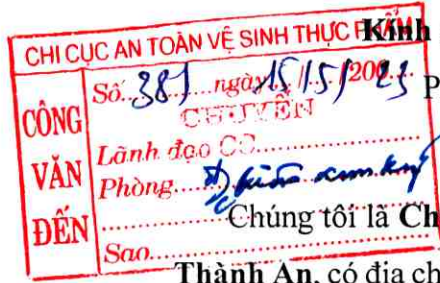 CHI CỤC AN TOÀN VỆ SINH THỰC PHẨM
Kính
CÔNG VĂN ĐẾN
Số 381 ngày 15/5/200 23
P
CHUYỂN
Lãnh đạo CC
Phòng
Chúng tôi là Ch
Sao
Thành An, có địa ch